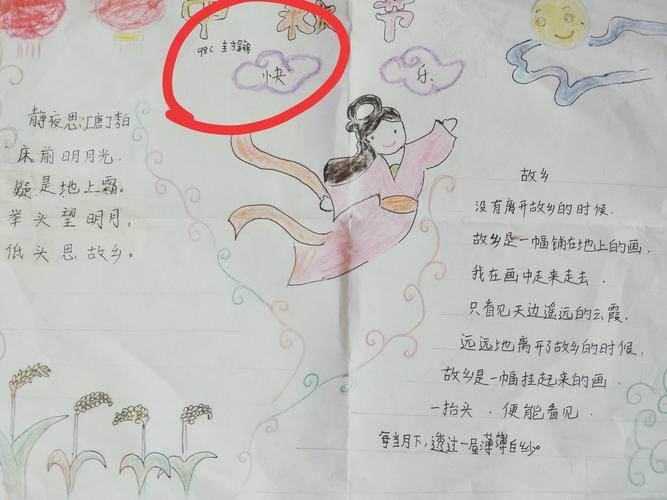 中秋节
快乐
静夜思[唐]李白
床前明月光.
疑是地上霜。
举头望明月,
低头思故乡。
故乡
没有离开故乡的时候.
故乡是一幅铺在地上的画.
我在画中走来走去.
只看见天边遥远的云霞.
远远地离开了故乡的时候,
故乡是一幅挂起来的画.
一抬头、便能看见.
每当月下,透过一层薄薄白纱。